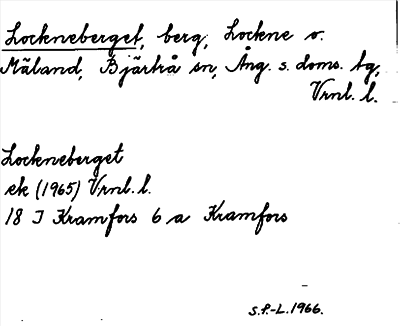 Lockneberget, berg, Lockne o.
Måland, Bjärtrå sn, Ång. s. doms. tg,
Vrnl. l.
Lockneberget
ek (1965) Vrnl. l.
18 I Kramfors 6 a Kramfors
S.F.-L. 1966.